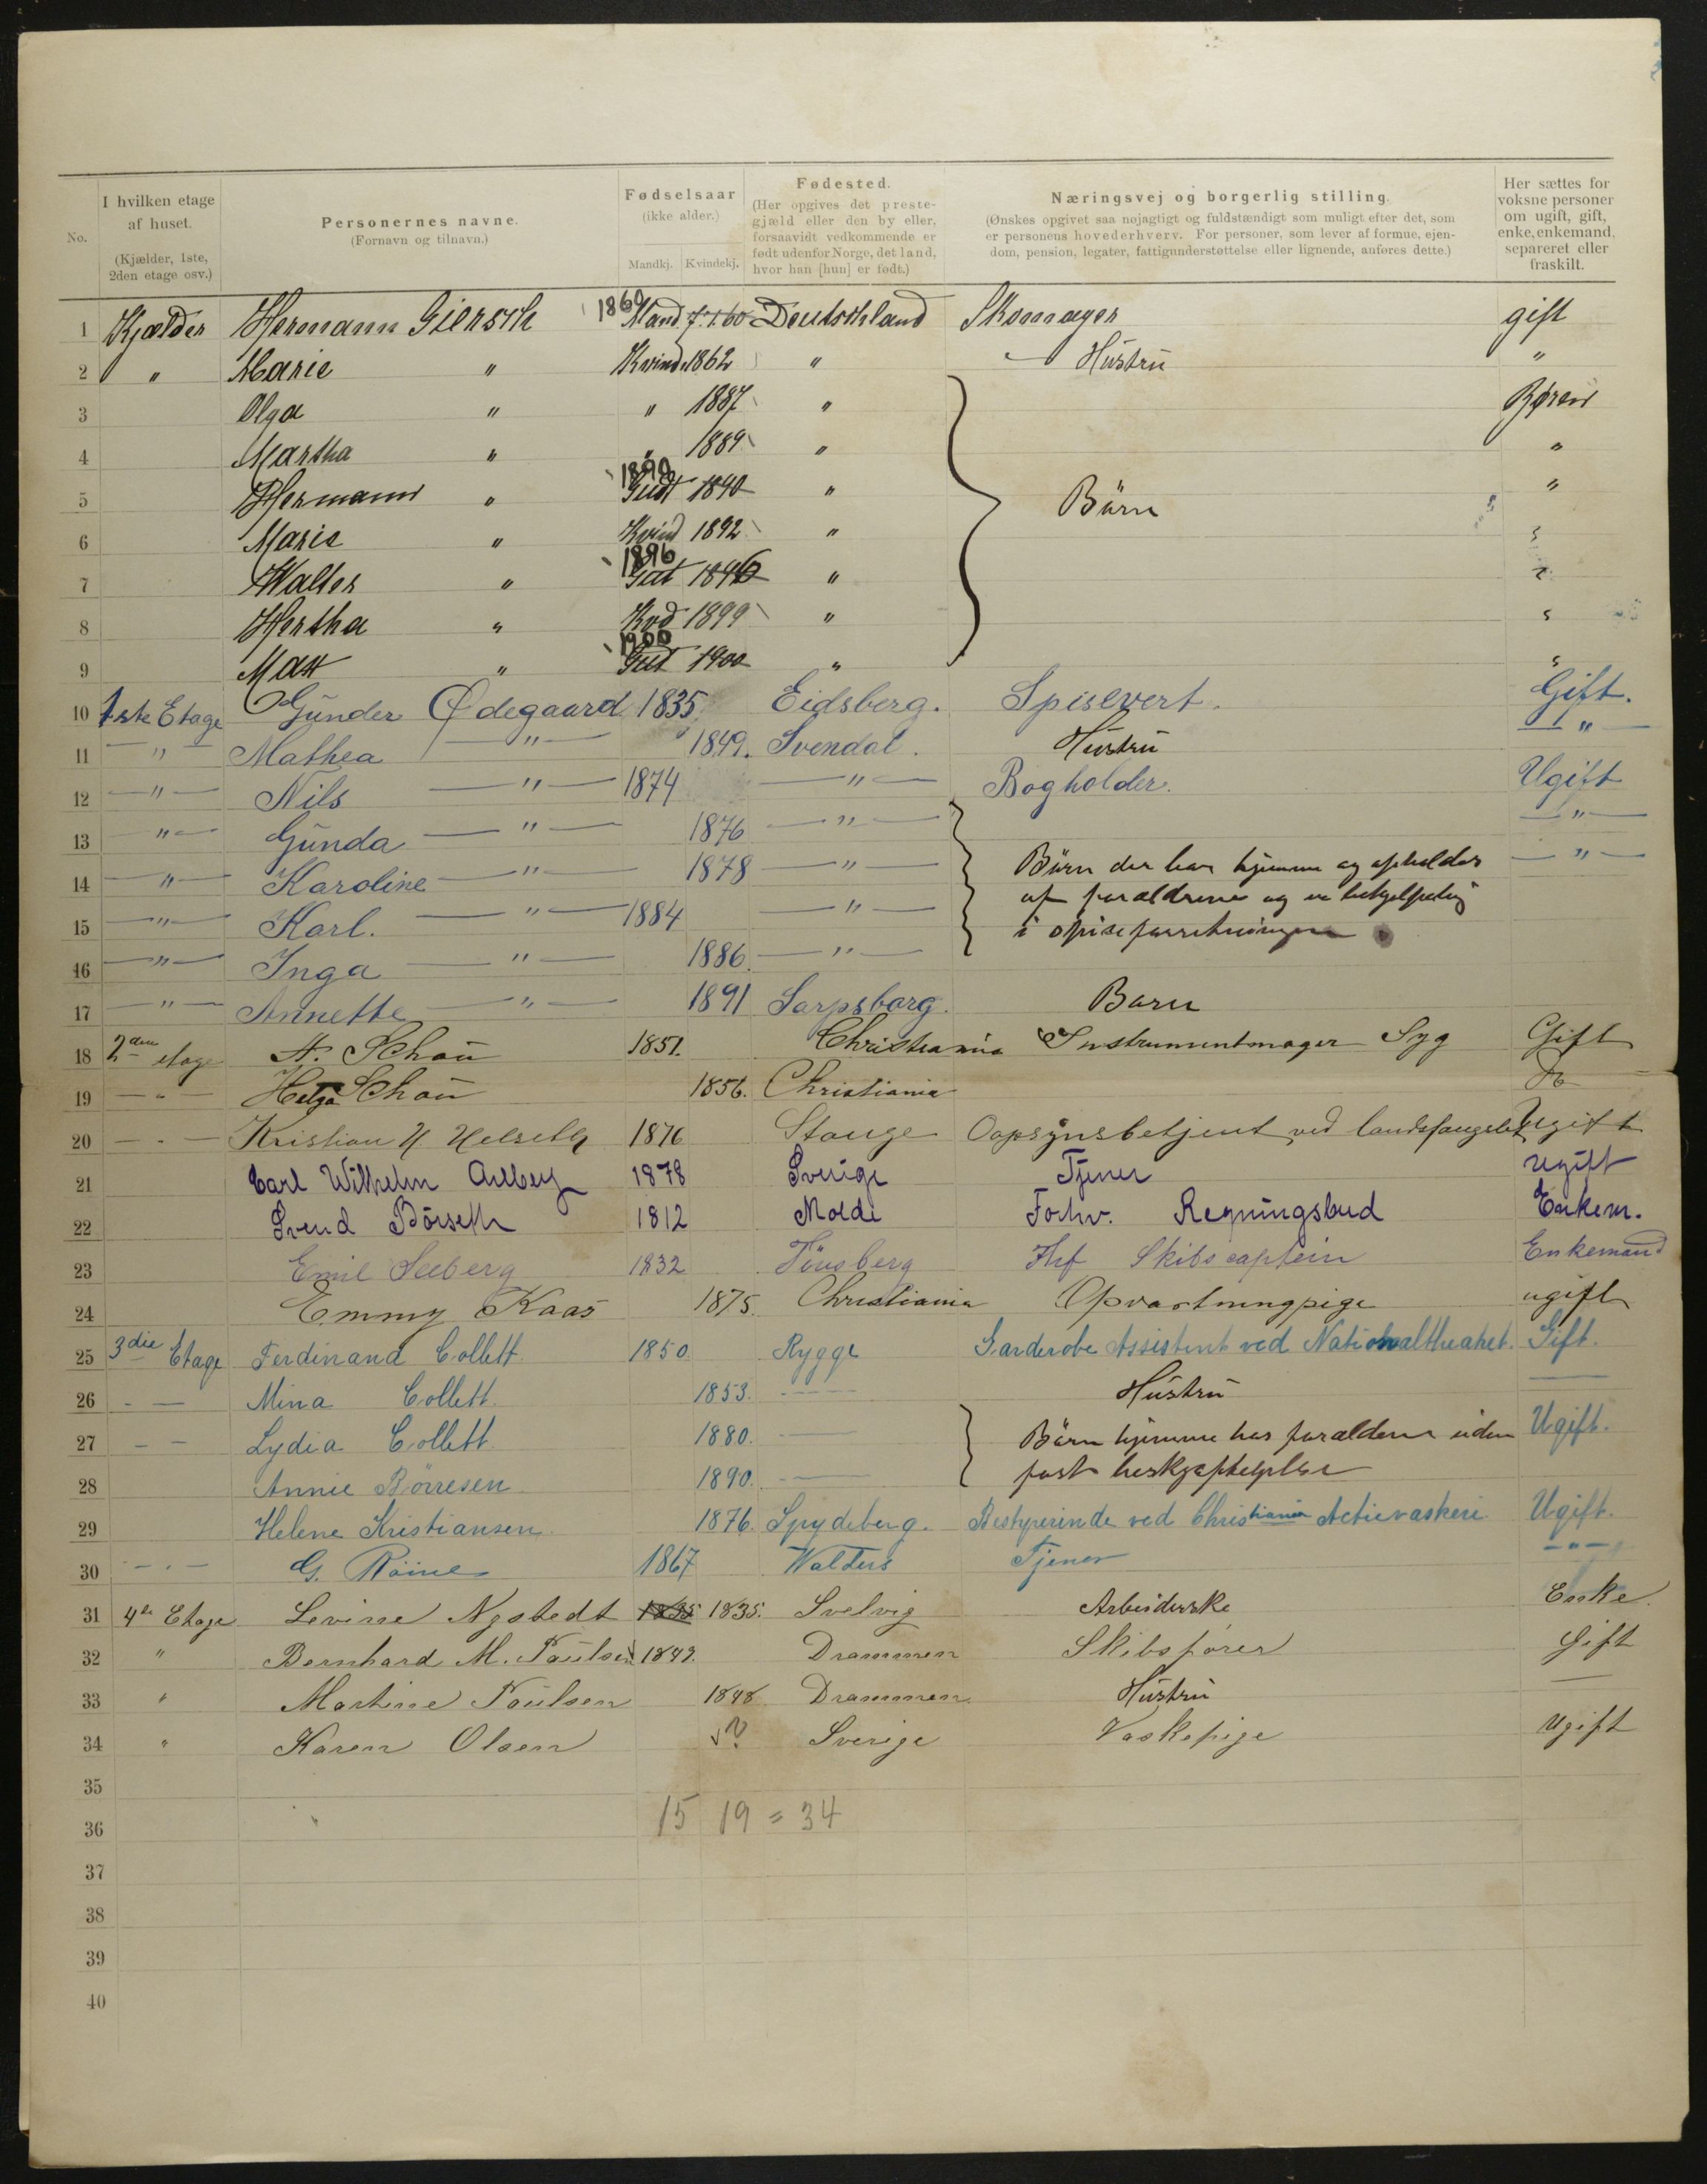 No.
I hvilken etage af huset. (Kjælder, 1ste, 2den etage osv.)
Personernes navne. (Fornavn og tilnavn.)
Fødselsaar (ikke alder.) Mandkj. Kvindekj.
Fødested. (Her opgives det prestegjæld eller den by eller, forsaavidt vedkommende er født udenfor Norge, det land, hvor han [hun] er født.)
Næringsvej og borgerlig stilling. (Ønskes opgivet saa nøjagtigt og fuldstændigt som muligt efter det, som er personens hovederhverv. For personer, som lever af formue, ejendom, pension, legater, fattigunderstøttelse eller lignende, anføres dette.)
Her sættes for voksne personer om ugift, gift, enke, enkemand, separeret eller fraskilt.
1 Kjælder Hermann Giersch 1860 Mand 7.1.60 Deutschland Skomager gift
2 " Marie " Kvind 1862 " Hustru "
3 Olga " " 1887 " Børen
4 Martha " " 1889 " "
5 Hermann " 1890 Gut 1890 " Børn "
6 Marie " Kvind 1892 " "
7 Walter " 1896 Gut 1896 " "
8 Hertha " Kvd 1899 " "
9 Max " 1900 Gut 1900 " "
10 1ste Etage Gunder Ødegaard 1835 Eidsberg. Spisevert. Gift.
11 " Mathea " 1849. Svendal. Hustru "
12 " Nils " 1874 " Bogholder. Ugift
13 " Gunda " 1876 " "
14 " Karoline " 1878 " Börn der har hjemme og opholdes "
15 " Karl. " 1884 " af forældrene og er behjelpelig
i spiseforretningen
16 " Inga " 1886. "
17 " Annette " 1891 Sarpsborg. Barn
18 2den etage A. Schou 1851. Christiania Instrumentmager Syg Gift
19 " Helga Schou 1856. Christiania Do
20 " Kristian H Helseth 1876 Stange Oopsynsbetjent ved landsfængslet Ugift
21 Carl Wilhelm 1878 Sverige Tjener ugift
22 Svend Börseth 1812 Molde Forhv. Regningsbud Enkem.
23 Emil Seeberg 1832 Tönsberg Fhf Skibscaptein Enkemand
24 Emmy Kaas 1875. Christiania Opvartningpige ugift
25 3die Etage Ferdinand Collett 1850. Rygge Garderobe Assistent ved Nationaltheatret. Gift.
26 Mina Collett. 1853. Hustru
27 Lydia Collett 1880. Börn hjemme hos forældrene uden Ugift.
28 Annie Börresen 1890. fast beskjæftigelse
29 Helene Kristiansen. 1876. Spydeberg. Bestyrerinde ved Christiania Actievaskeri Ugift.
30 G. Röine 1867 Walders Tjener "
31 4de Etage Levine Nystedt 1835 1835. Svelvig Arbeiderske Enke.
32 " Bernhard M. Paulsen 1847. Drammen Skibsfører Gift
33 " Martine Paulsen 1848 Drammen. Hustru
34 " Karen Olsen ? Sverige Vaskepige Ugift
35
36 15 19 = 34
37
38
39
40